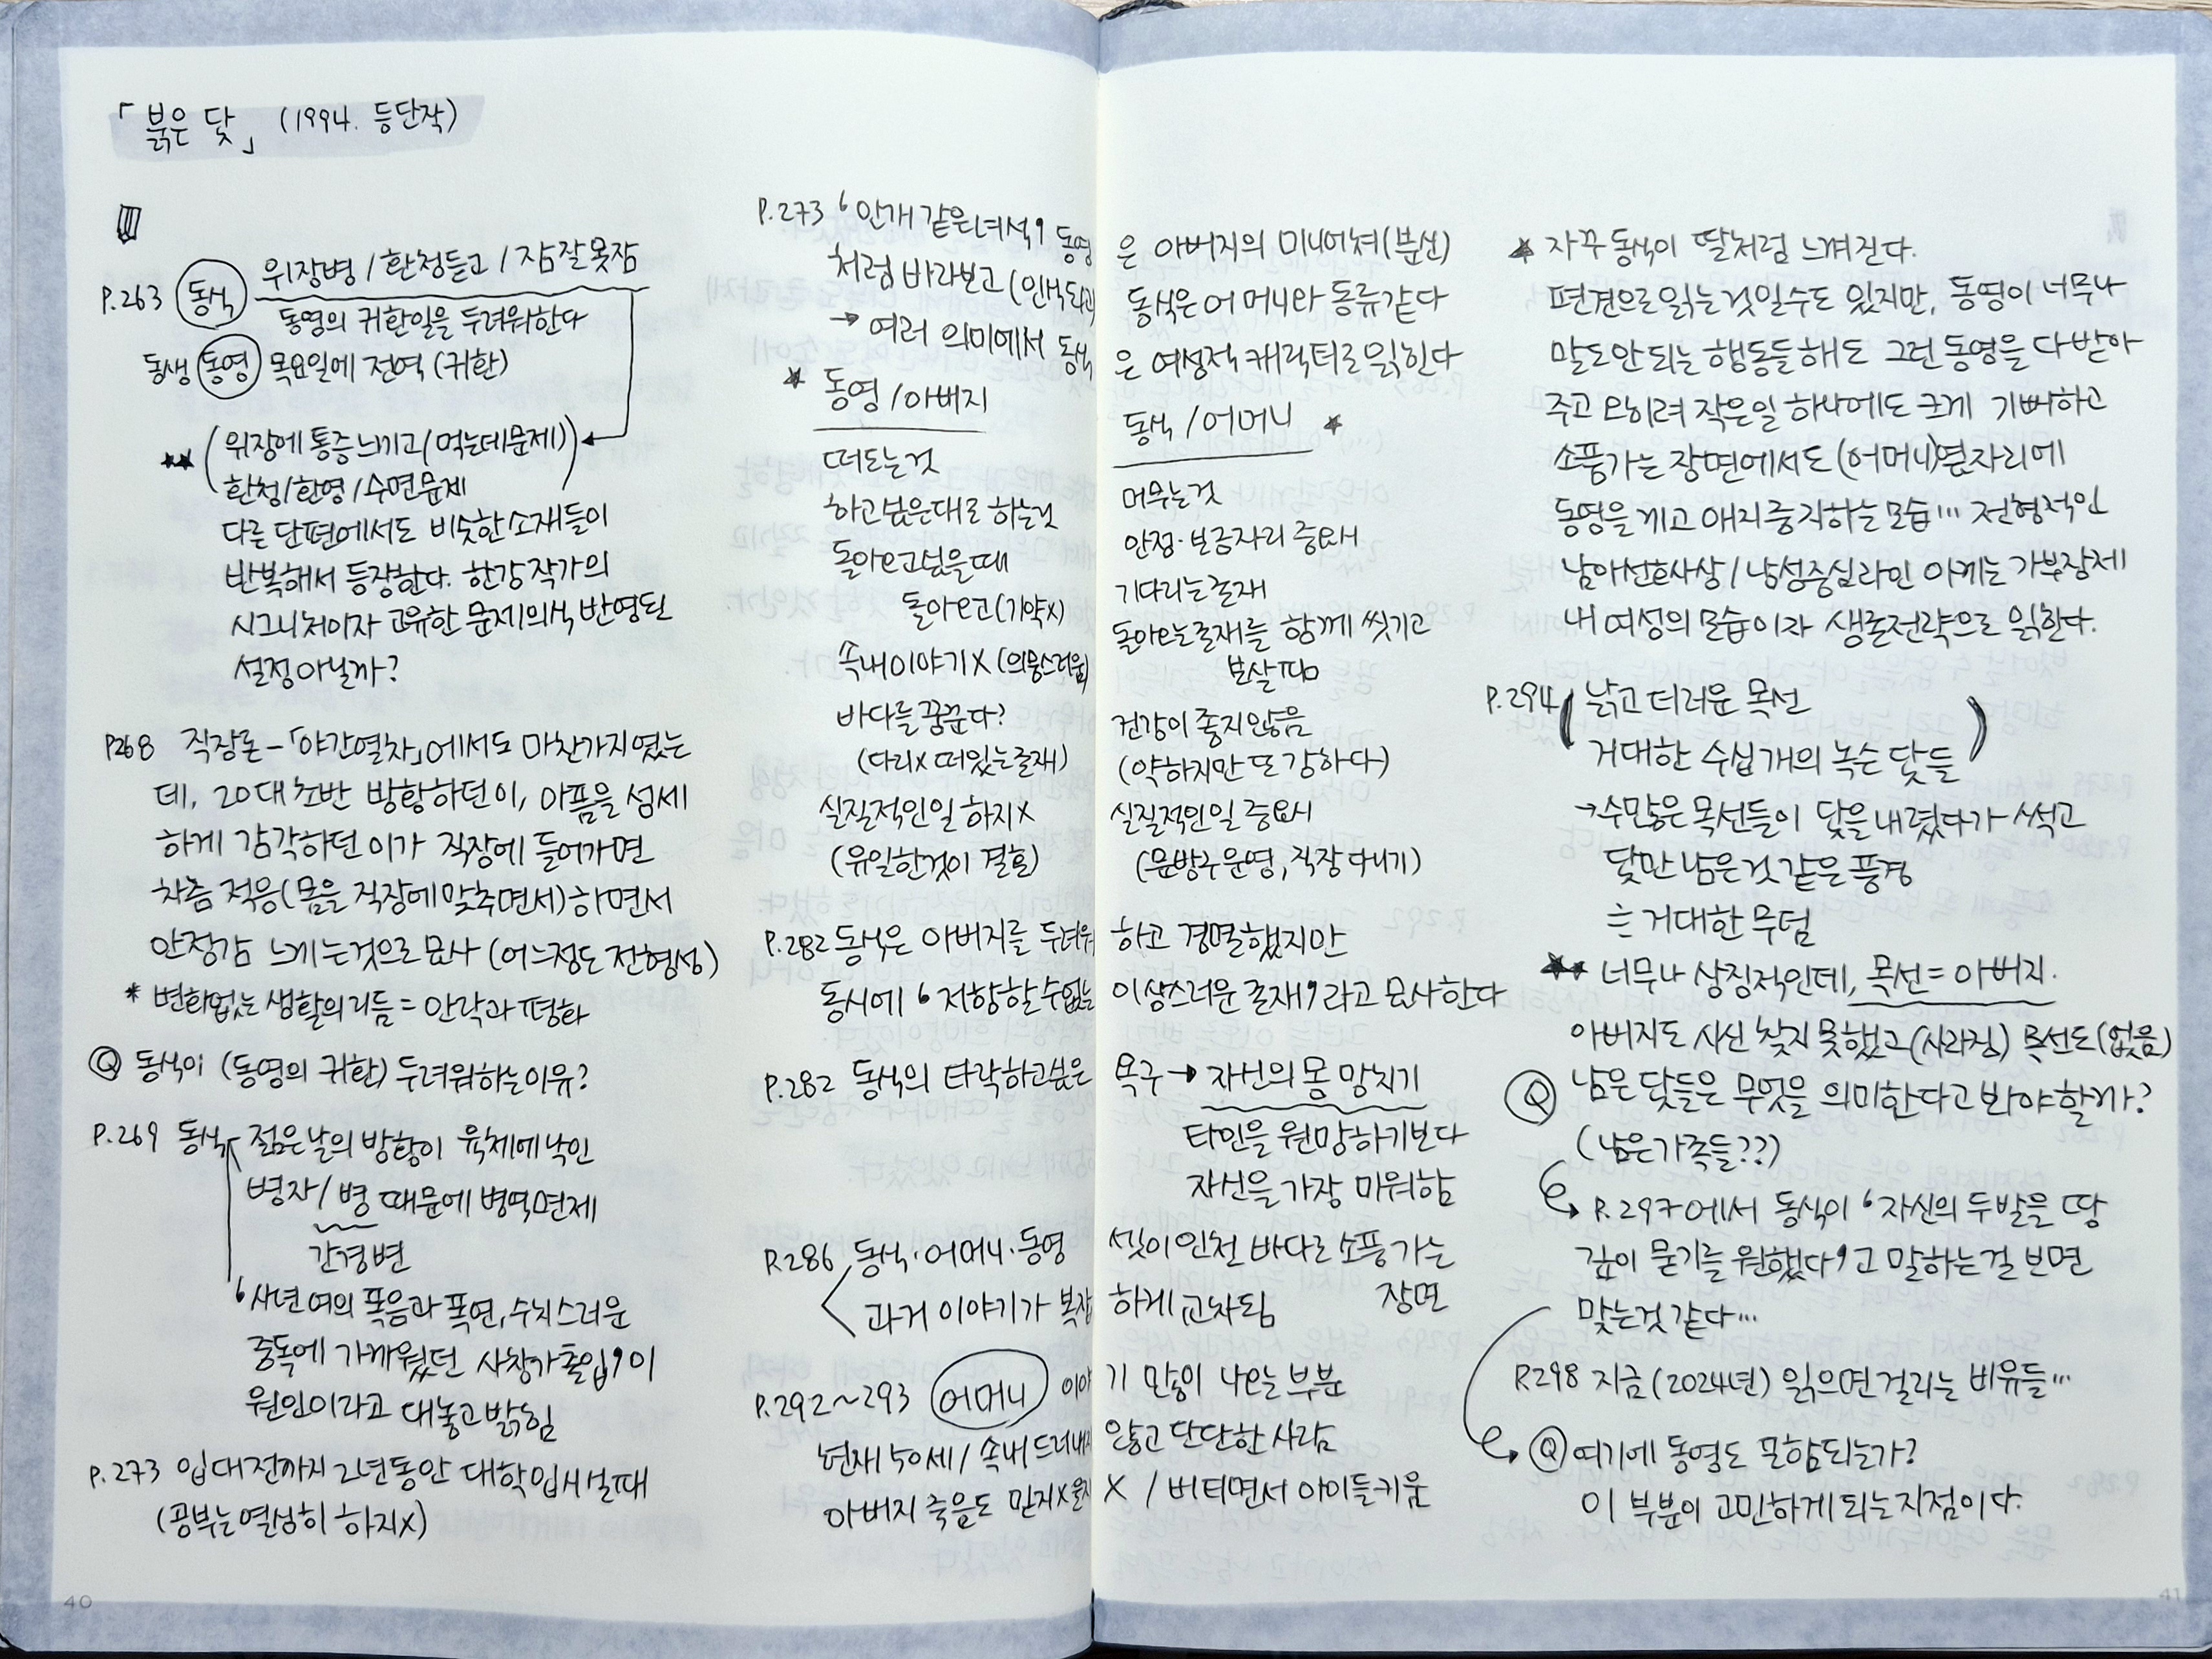 「붉은 닻」 (1994. 등단작)
P.263 동식 위장병 / 환청듣고 / 잠 잘 못잠
동영의 귀환일을 두려워한다
동생 동영 목요일에 전역 (귀환)
★★ (위장에 통증 느끼고(먹는데 문제)
환청/환영/수면문제)
다른 단편에서도 비슷한 소재들이
반복해서 등장한다. 한강 작가의
시그니처이자 고유한 문제의식 반영된
설정 아닐까?
P268 직장론 - 「야간열차」에서도 마찬가지였는
데, 20대 초반 방황하던 이, 아픔을 섬세
하게 감각하던 이가 직장에 들어가면
차츰 적응(몸을 직장에 맞추면서)하면서
안정감 느끼는 것으로 묘사 (어느정도 전형성)
* 변화없는 생활의 리듬 = 안락과 평화
Q 동식이 (동영의 귀환) 두려워하는 이유?
P.269 동식 젊은날의 방황이 육체에 낙인
병자/병 때문에 병역면제
간경변
‘사년여의 폭음과 폭연, 수치스러운
중독에 가까웠던 사창가 출입’이
원인이라고 대놓고 밝힘
P.273 입대 전까지 2년동안 대학입시 설때
(공부는 열심히 하지x)
P.273 ‘안개 같은 녀석’ 동영은 아버지의 미니어쳐(분신)
처럼 바라보고 (인식되고) 동식은 어머니와 동류같다
→ 여러 의미에서 동식은 여성적 캐릭터로 읽힌다
★ 동영 / 아버지
떠도는것
하고싶은대로 하는것
돌아오고싶을때
돌아오고(기약x)
속내이야기 x (의뭉스러움)
바다를 꿈꾼다?
(다리x 떠있는존재)
실질적인일 하지x
(유일한것이 결혼)
동식 / 어머니 ★
머무는것
안정·보금자리 중요해
기다리는존재
돌아오는존재를 함께 씻기고
보살피며
건강이 좋지않음
(약하지만 또 강하다)
실질적인일 중요시
(문방구 운영, 직장 다니기)
P.282 동식은 아버지를 두려워하고 경멸했지만
동시에 ‘저항할 수 없는 이상스러운 존재’라고 묘사한다
P.282 동식의 타락하고싶은 욕구 → 자신의 몸 망치기
타인을 원망하기보다
자신을 가장 미워함
P.286 동식·어머니·동영 셋이 인천 바다로 소풍 가는
장면
과거 이야기가 복잡하게 교차됨
P.292~293 어머니 이야기 많이 나오는 부분
현재 50세/ 속내 드러내지 않고 단단한 사람
아버지 죽음도 믿지x 울지 X / 버티면서 아이들 키움
★ 자꾸 동식이 딸처럼 느껴진다.
편견으로 읽는것일수도 있지만, 동영이 너무나
말도안되는 행동들해도 그런 동영을 다 받아
주고 오히려 작은일 하나에도 크게 기뻐하고
소풍가는 장면에서도 (어머니)옆자리에
동영을 끼고 애지중지하는 모습… 전형적인
남아선호사상 / 남성중심라인 아끼는 가부장제
내 여성의 모습이자 생존전략으로 읽힌다.
P.294 (낡고 더러운 목선
거대한 수십개의 녹슨 닻들)
→수많은 목선들이 닻을 내렸다가 썩고
닻만 남은것 같은 풍경
≒ 거대한 무덤
★★ 너무나 상징적인데, 목선 = 아버지.
아버지도 시신 찾지 못했고(사라짐) 목선도(없음)
Q 남은 닻들은 무엇을 의미한다고 봐야할까?
(남은가족들??)
P.297에서 동식이 ‘자신의 두발을 땅
깊이 묻기를 원했다’고 말하는걸 보면
맞는것 같다…
P.298 지금(2024년) 읽으면 걸리는 비유들…
Q 여기에 동영도 포함되는가?
이 부분이 고민하게 되는 지점이다.
40
41